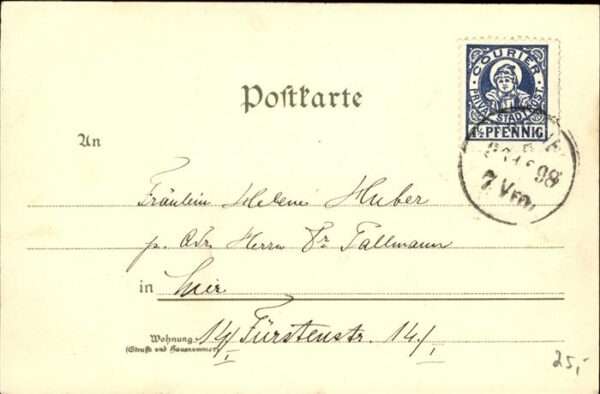 COURIER
PRIVAT STADTPOST
1½ PFENNIG
Postkarte
98
7 Vrm
An
Fräulein Helene Huber
p. Adr. Herrn Dr Tallmann
in hier
Wohnung 14/I Fürstenstr. 14/I
(Straße und Hausnummer)
25,-